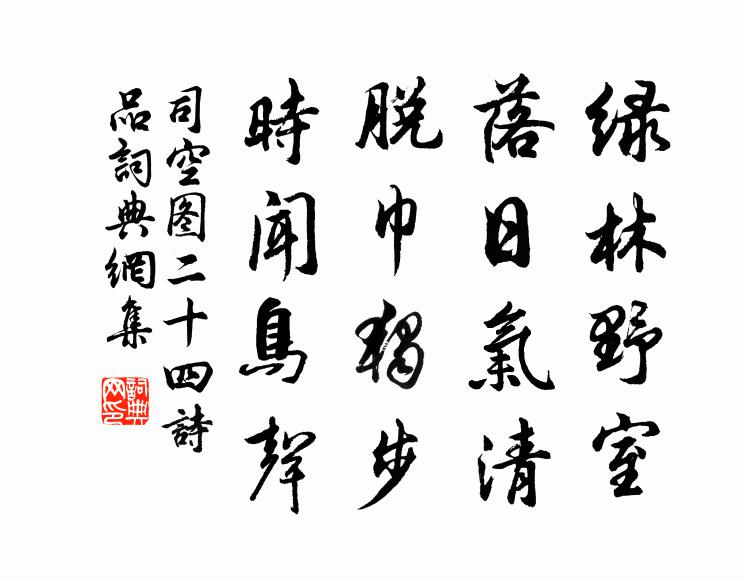 绿林野室
落日氣清
脱巾獨步
時聞鳥聲
司空图二十四詩
品詞典網集
詞典
网印